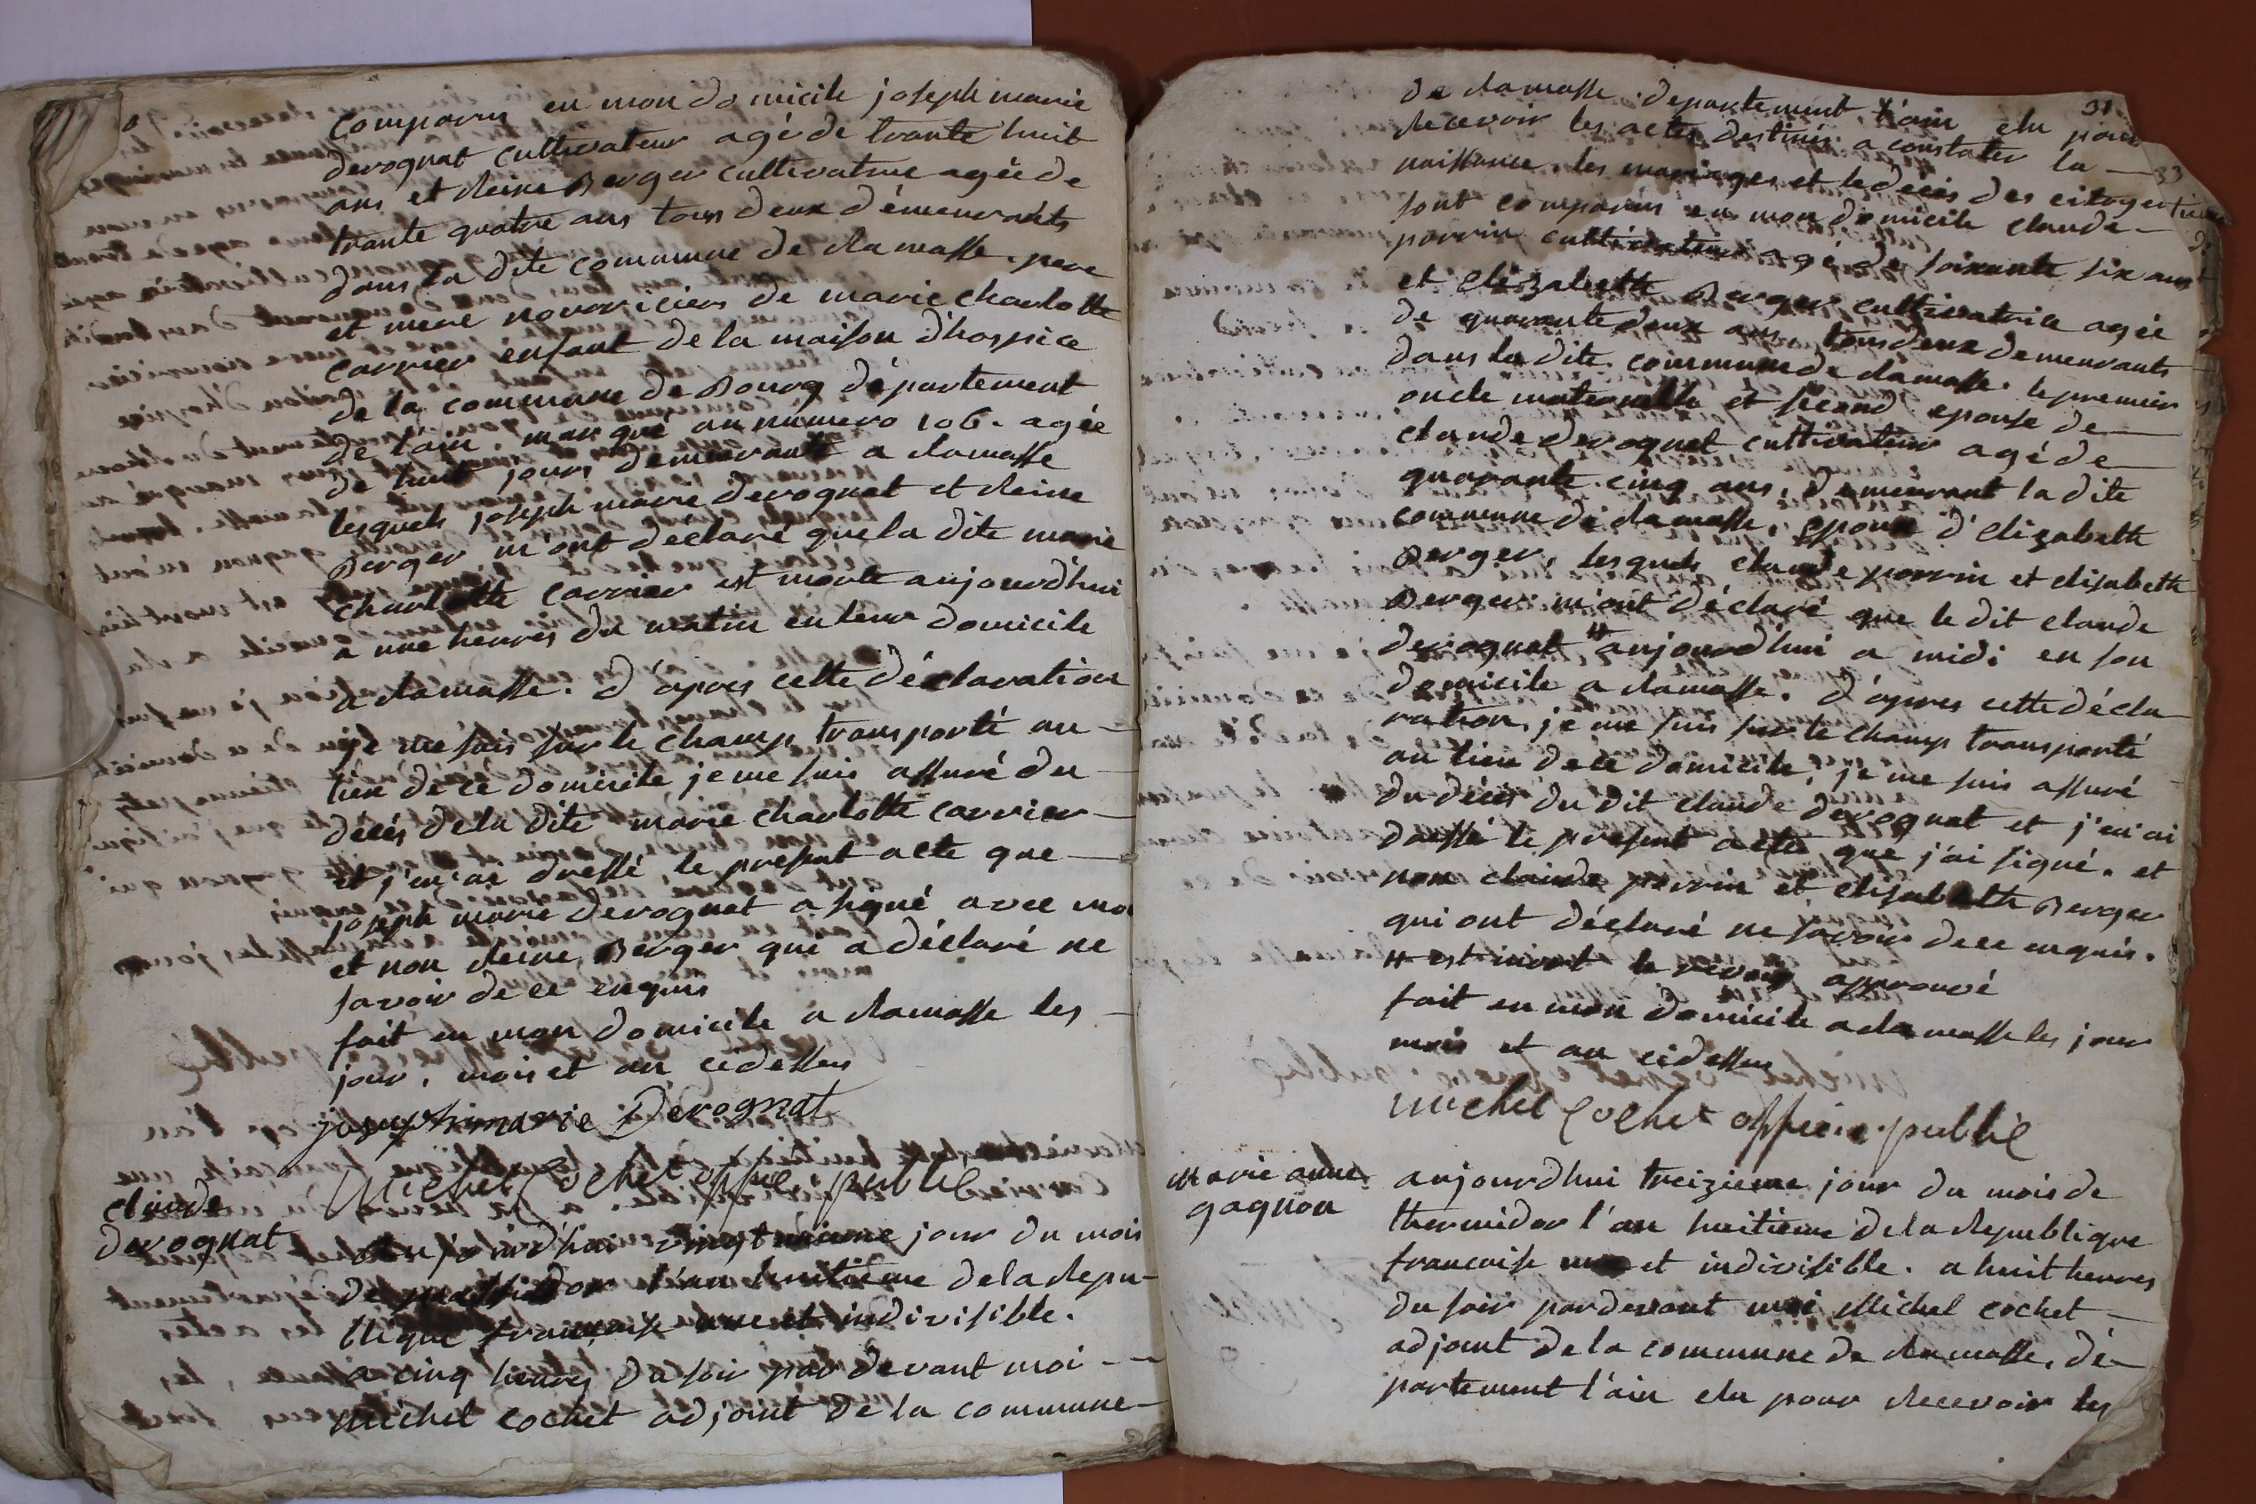 comparus en mon domicile joseph marie
derognat cultivateur agé de trante huit
ans et Reine Berger cultivatrice agée de
trante quatre ans tous deux démeurants
dans la dite commune de Ramasse. pere
et mere nourriciers de marie charlotte
carrier enfant de la maison d'hospice
de la commune de Bourg département
de l'ain, marqué au numero 106. agée
de huit jours demeurante a Ramasse
lesquels joseph marie derognat et Reine
Berger m'ont declaré que la dite marie
charlotte carrier est morte aujourd'hui
a une heures du matin en leur domicile
a Ramasse. d'apres cette déclaration
je me suis sur le champ transporté au -
lieu de ce domicile je me suis assuré du
decès de la dite marie charlotte carrier -
et j'en ai dressé le present acte que -
joseph marie derognat a signé avec moi
et non Reine Berger qui a déclaré ne
savoir de ce enquis
fait en mon domicile a Ramasse les -
jour, mois et an cidessus
joseph marie Derognat
Michel Cochet offic. public
claude
derognat
Aujourd'hui vingt jour du mois
de l'an huitième de la Repu-
blique française une et indivisible.
a cinq heures du soir par devant moi -
michel cochet adjoint de la commune -
31.
de Ramasse. departement l'ain elu pour
Recevoir les actes destinés a constater la -
33
naissance, les mariages et le decès des citoyens
sont comparus en mon domicile claude -
perrin cultivateur agé de soixante six ans
et Elizabeth Berger cultivatrice agée
de quarante deux ans tous deux demeurants
dans la dite commune de Ramasse. le premier
oncle maternelle et second epouse de
claude derognat cultivateur agé de
quarante cinq ans, demeurant la dite
commune de Ramasse, epoux d'elizabeth
Berger, lesquels claude perrin et elisabeth
Berger m'ont déclaré que le dit claude
derognat # aujourd'hui a midi en son
domicile a Ramasse. d'apres cette décla
ration, je me suis sur le champ transporté
au lieu de ce domicile, je me suis assuré
du décès du dit claude derognat et j'en ai
dressé le present acte que j'ai signé. et
non claude perrin et elisabeth Berger
qui ont déclaré ne savoir de ce enquis.
# est mort le renvoy approuvé
fait en mon domicile a Ramasse les jour
mois et an cidessus
Michel Cochet officie. public
Marie anne
gagnon
aujourdhui treizieme jour du mois de
thermidor l'an huitieme de la Republique
francaise une et indivisible. a huit heures
du soir pardevant moi Michel cochet -
adjoint de la commune de Ramasse, dé-
partement l'ain elu pour Recevoir les